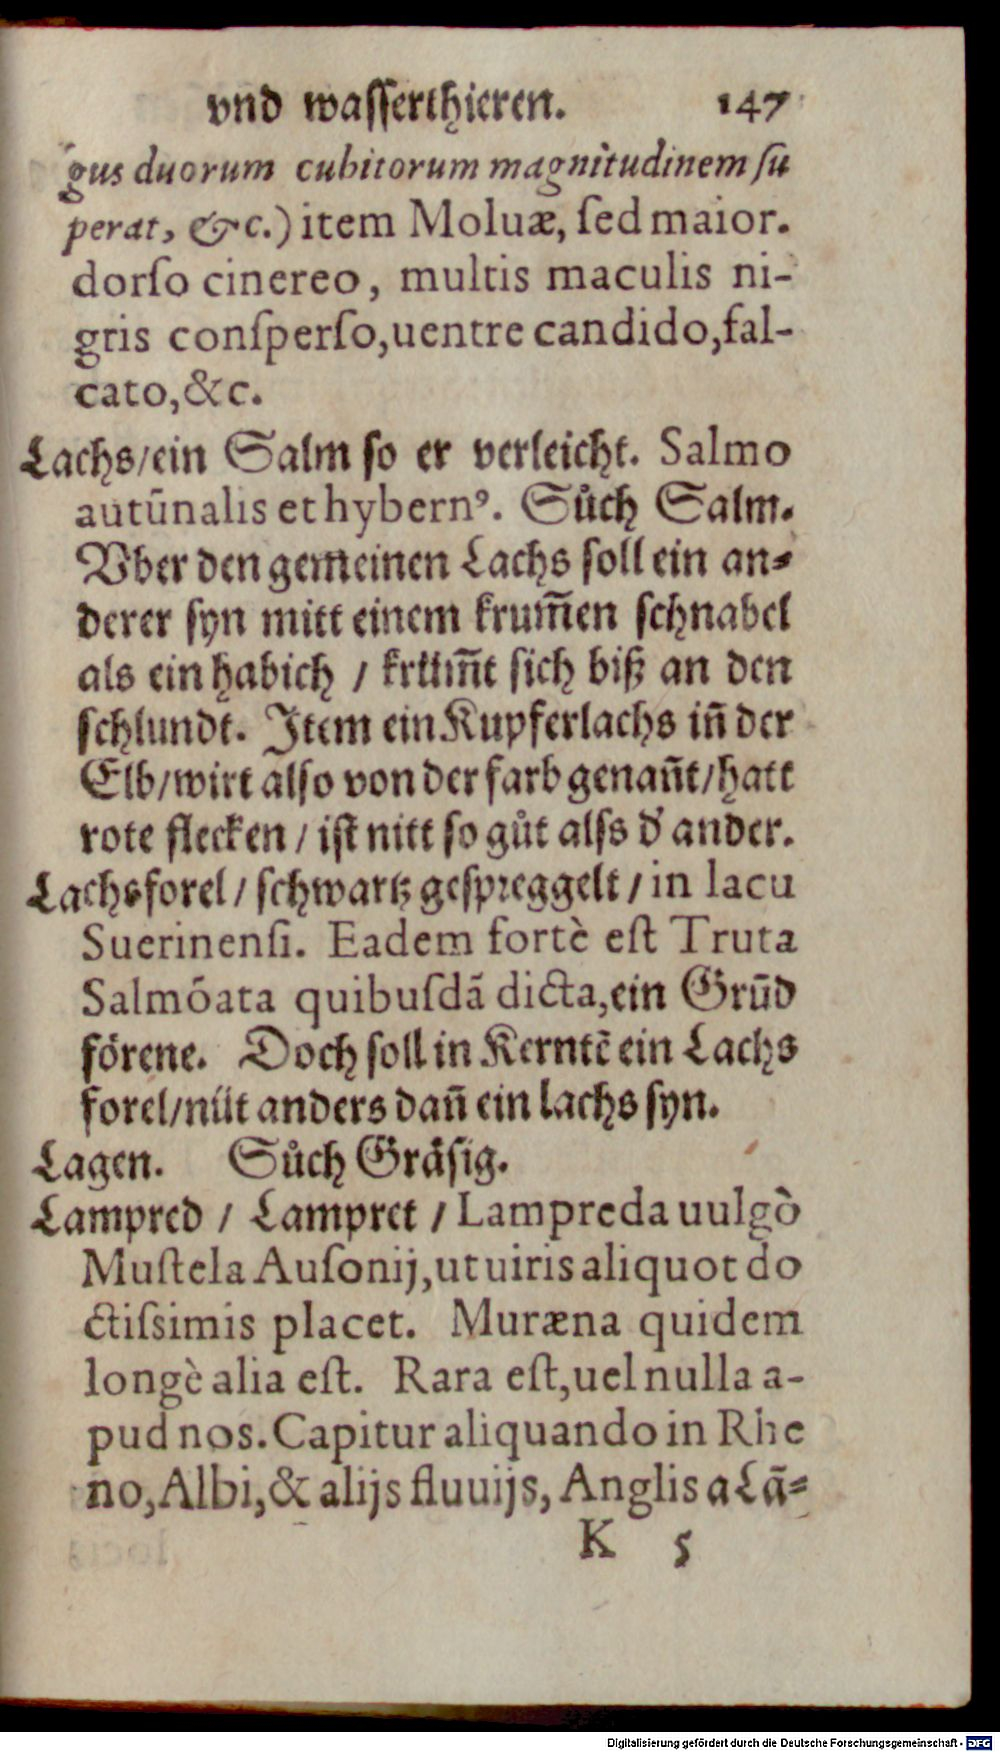 vnd wasserthieren. 147
gus duorum cubitorum magnitudinem ſu
perat, &c.) item Moluæ, ſed maior.
dorſo cinereo, multis maculis ni-
gris conſperſo,uentre candido,fal-
cato,&c.
Lachs/ein Salm so er verleicht. Salmo
autūnalis et hybernꝰ. Sůch Salm.
Vber den gemeinen Lachs soll ein an⸗
derer syn mitt einem krum̄en schnabel
als ein habich / krüm̄t sich biß an den
schlundt. Item ein Kupferlachs in̄ der
Elb/wirt also von der farb genan̄t/hatt
rote flecken / ist nitt so gůt alss d' ander.
Lachsforel / schwartz gespreggelt / in lacu
Suerinenſi. Eadem fortè eſt Truta
Salmōata quibuſdā dicta,ein Grūd
förene. Doch soll in Kerntē ein Lachs
forel/nüt anders dan̄ ein lachs syn.
Lagen. Sůch Gräsig.
Lampred / Lampret / Lampreda uulgò
Muſtela Auſonij,ut uiris aliquot do
ctiſsimis placet. Muræna quidem
longè alia eſt. Rara eſt,uel nulla a-
pud nos. Capitur aliquando in Rhe
no,Albi,& alijs fluuijs, Anglis a Lā⸗
K 5
Digitalisierung gefördert durch die Deutsche Forschungsgemeinschaft - DFG